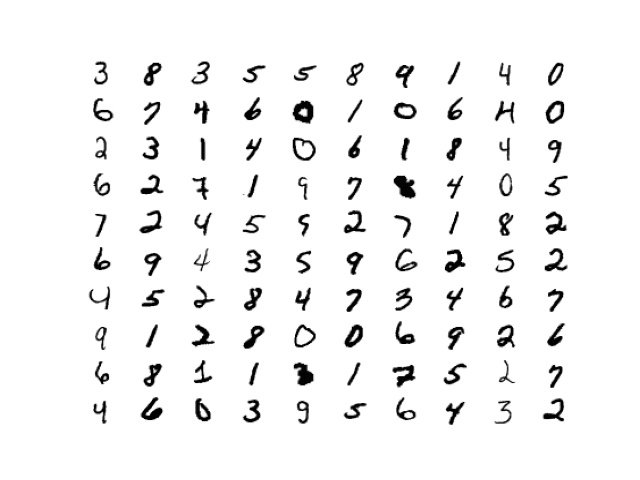 3 8 3 5 5 8 9 1 4 0
6 7 4 6 0 1 0 6 4 0
2 3 1 4 0 6 1 8 4 9
6 2 7 1 9 7 8 4 0 5
7 2 4 5 9 2 7 1 8 2
6 9 4 3 5 9 6 2 5 2
4 5 2 8 4 7 3 4 6 7
9 1 2 8 0 0 6 9 2 6
6 8 1 1 3 1 7 5 2 7
4 6 0 3 9 5 6 4 3 2